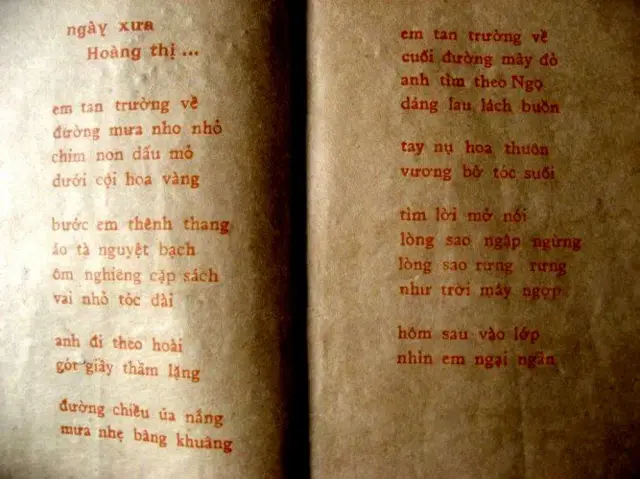 ngày xưa
Hoàng thị ...
em tan trường về
đường mưa nho nhỏ
chim non dấu mỏ
dưới cội hoa vàng
bước em thênh thang
áo tà nguyệt bạch
ôm nghiêng cặp sách
vai nhỏ tóc dài
anh đi theo hoài
gót giầy thầm lặng
đường chiều úa nắng
mưa nhẹ bâng khuâng
em tan trường về
cuối đường mây đỏ
anh tìm theo Ngọ
dáng lau lách buồn
tay nụ hoa thuôn
vương bờ tóc suối
tìm lời mở nói
lòng sao ngập ngừng
lòng sao rưng rưng
như trời mây ngợp
hôm sau vào lớp
nhìn em ngại ngần